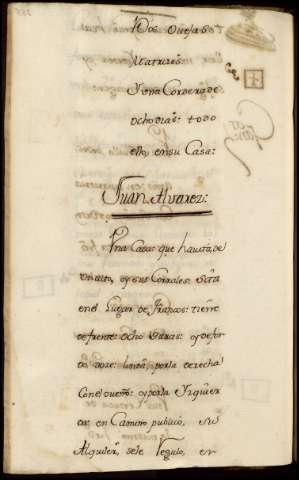 Dos Ovejas
Matrizes:
Y una Cordera de
ocho dias: todo
ello, en su Casa:
Juan Alvarez:
Una Casa que havita, de
un alto, y sus Corrales: esta
en el Lugar de
de frente: ocho Varas: y de fon
do nove: linda, por la derecha
Con el dueño: y por la Izquier
da: en Camino publico, su
Alquiler, se le regulo, en